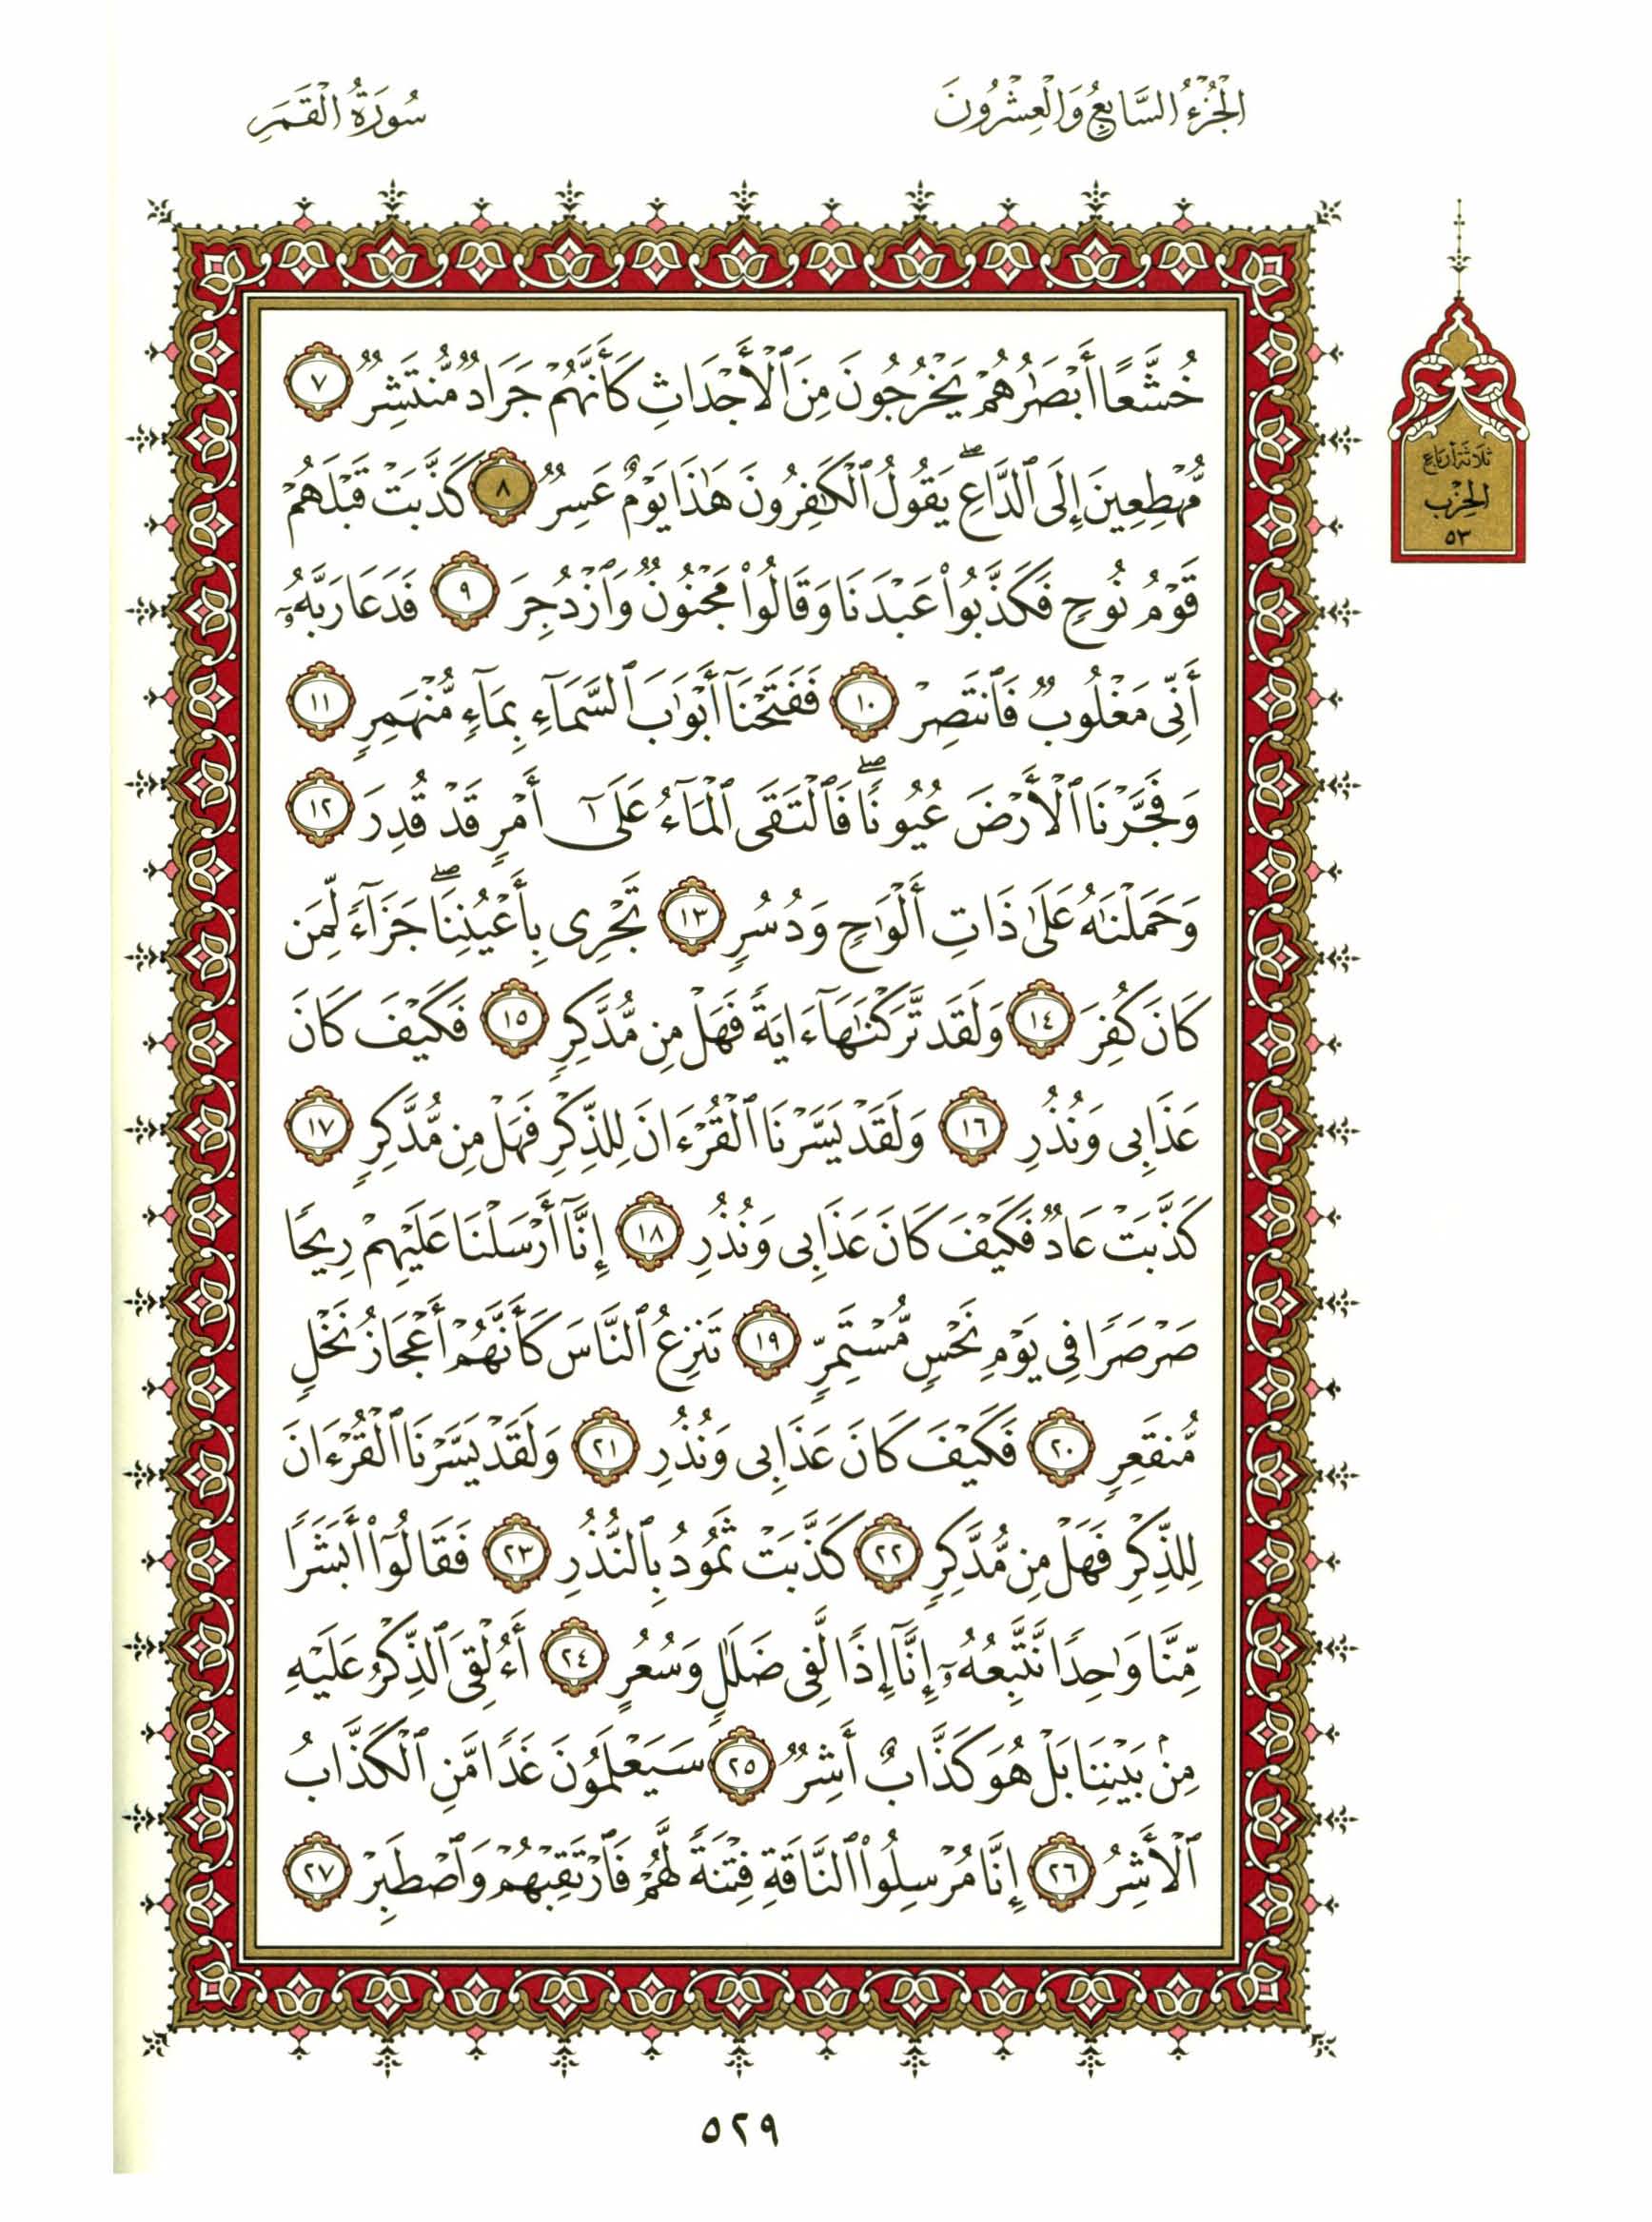 الجُزْءُ السَّابِعُ وَالْعِشْرُونَ
سُورَةُ الْقَمَرِ
خُشَّعًا أَبْصَٰرُهُمْ يَخْرُجُونَ مِنَ ٱلْأَجْدَاثِ كَأَنَّهُمْ جَرَادٌ مُّنتَشِرٌ ٧
مُّهْطِعِينَ إِلَى ٱلدَّاعِ ۖ يَقُولُ ٱلْكَٰفِرُونَ هَٰذَا يَوْمٌ عَسِرٌ ٨ كَذَّبَتْ قَبْلَهُمْ
قَوْمُ نُوحٍ فَكَذَّبُوا۟ عَبْدَنَا وَقَالُوا۟ مَجْنُونٌ وَٱزْدُجِرَ ٩ فَدَعَا رَبَّهُۥٓ
أَنِّى مَغْلُوبٌ فَٱنتَصِرْ ١٠ فَفَتَحْنَآ أَبْوَٰبَ ٱلسَّمَآءِ بِمَآءٍ مُّنْهَمِرٍ ١١
وَفَجَّرْنَا ٱلْأَرْضَ عُيُونًا ۖ فَٱلْتَقَى ٱلْمَآءُ عَلَىٰٓ أَمْرٍ قَدْ قُدِرَ ١٢
وَحَمَلْنَٰهُ عَلَىٰ ذَاتِ أَلْوَٰحٍ وَدُسُرٍ ١٣ تَجْرِى بِأَعْيُنِنَا ۖ جَزَآءً لِّمَن
كَانَ كُفِرَ ١٤ وَلَقَد تَّرَكْنَٰهَآ ءَايَةً فَهَلْ مِن مُّدَّكِرٍ ١٥ فَكَيْفَ كَانَ
عَذَابِى وَنُذُرِ ١٦ وَلَقَدْ يَسَّرْنَا ٱلْقُرْءَانَ لِلذِّكْرِ فَهَلْ مِن مُّدَّكِرٍ ١٧
كَذَّبَتْ عَادٌ فَكَيْفَ كَانَ عَذَابِى وَنُذُرِ ١٨ إِنَّآ أَرْسَلْنَا عَلَيْهِمْ رِيحًا
صَرْصَرًا فِى يَوْمِ نَحْسٍ مُّسْتَمِرٍّ ١٩ تَنزِعُ ٱلنَّاسَ كَأَنَّهُمْ أَعْجَازُ نَخْلٍ
مُّنقَعِرٍ ٢٠ فَكَيْفَ كَانَ عَذَابِى وَنُذُرِ ٢١ وَلَقَدْ يَسَّرْنَا ٱلْقُرْءَانَ
لِلذِّكْرِ فَهَلْ مِن مُّدَّكِرٍ ٢٢ كَذَّبَتْ ثَمُودُ بِٱلنُّذُرِ ٢٣ فَقَالُوٓا۟ أَبَشَرًا
مِّنَّا وَٰحِدًا نَّتَّبِعُهُۥٓ إِنَّآ إِذًا لَّفِى ضَلَٰلٍ وَسُعُرٍ ٢٤ أَءُلْقِىَ ٱلذِّكْرُ عَلَيْهِ
مِنۢ بَيْنِنَا بَلْ هُوَ كَذَّابٌ أَشِرٌ ٢٥ سَيَعْلَمُونَ غَدًا مَّنِ ٱلْكَذَّابُ
ٱلْأَشِرُ ٢٦ إِنَّا مُرْسِلُوا۟ ٱلنَّاقَةِ فِتْنَةً لَّهُمْ فَٱرْتَقِبْهُمْ وَٱصْطَبِرْ ٢٧
ثَلَاثَةُ أَرْبَاعِ
الحِزْبِ
٥٣
٥٢٩